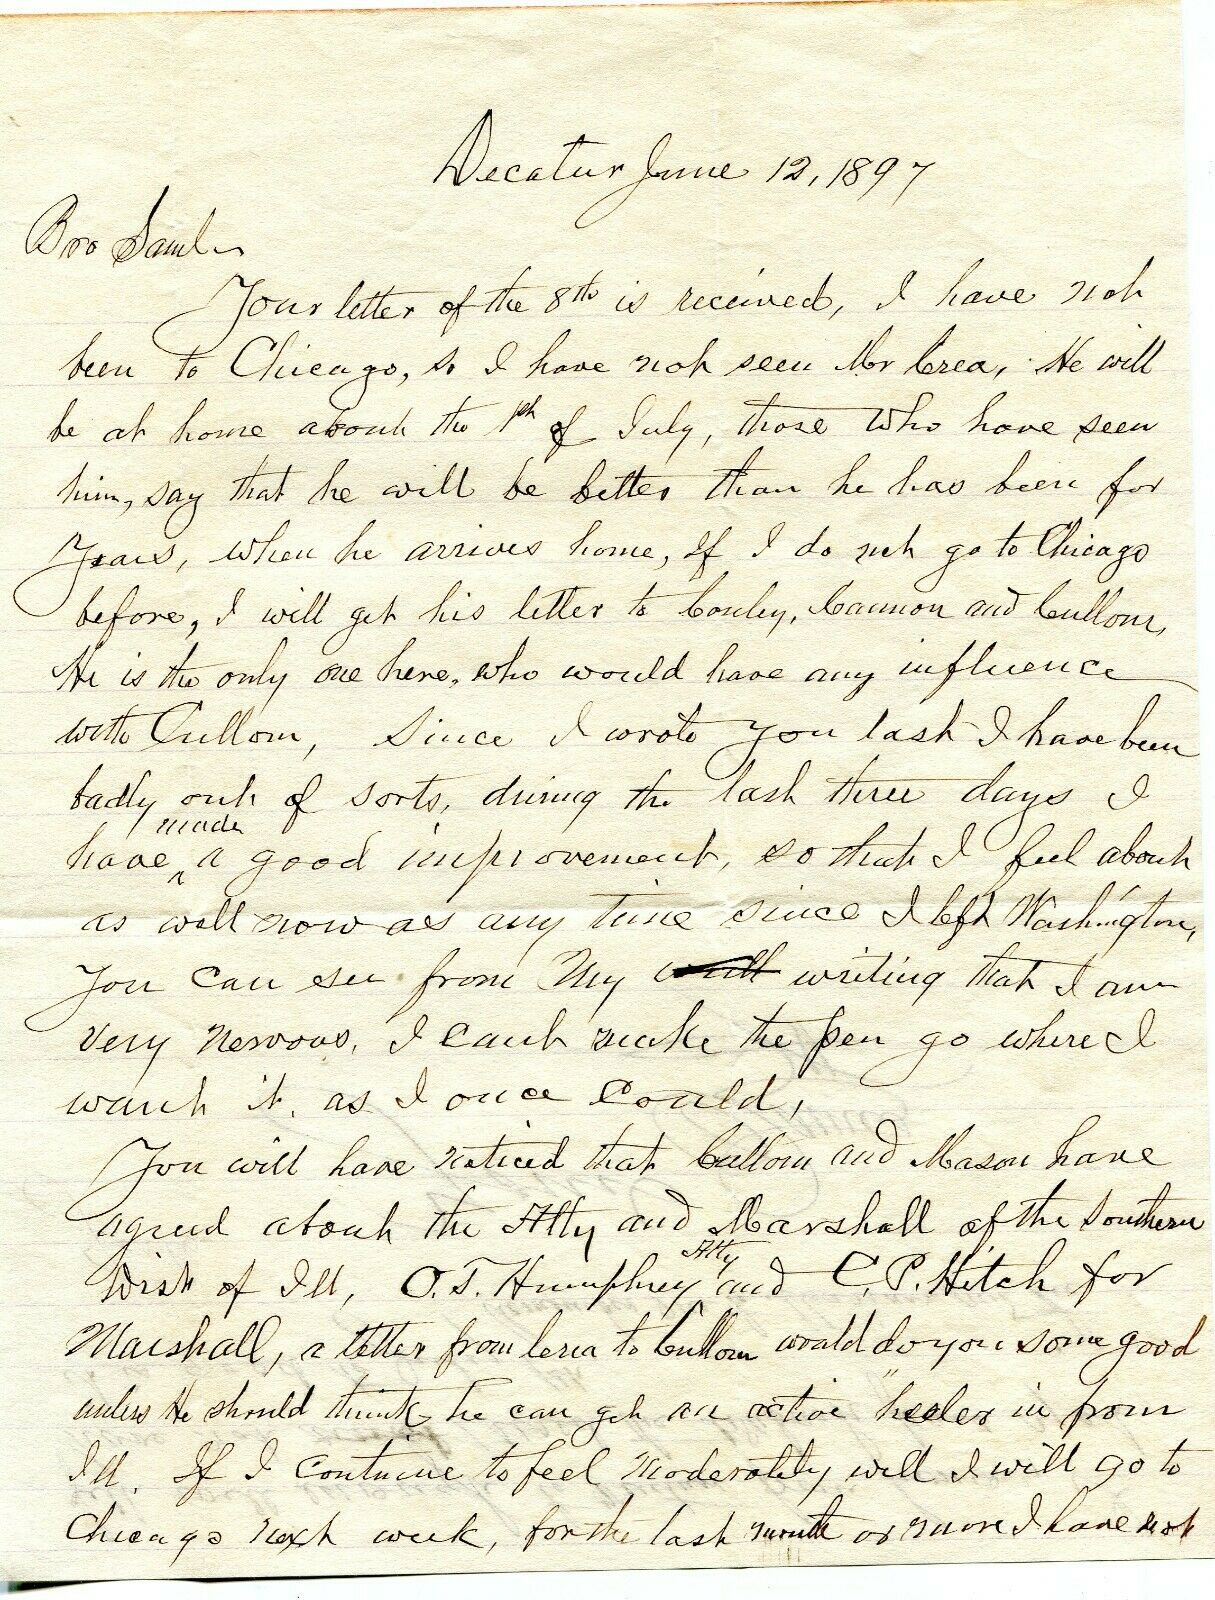 Decatur June 12, 1897
Bro Saml
Your letter of the 8th is received, I have not
been to Chicago, so I have not seen Mr Crea, He will
be at home about the 1st of July, those who have seen
him, say that he will be better than he has been for
Years, when he arrives home, If I do not go to Chicago
before, I will get his letter to Conley, Cannon and Cullom,
He is the only one here, who would have any influence
with Cullom, Since I wrote you last I have been
badly out of sorts, during the last three days I
made
have ^ a good improvement, so that I feel about
as well now as any time since I left Washington,
You can see from my well writing that I am
very nervous, I cant make the pen go where I
want it, as I once could,
You will have noticed that Cullom and Mason have
agreed about the Atty and Marshall of the Southern
Atty
Dist of Ill, O.T. Humphrey and C.P. Hitch for
Marshall, a letter from Crea to Cullom would do you some good
unless He should think he can get an active "heeler in from
Ill. If I continue to feel moderately well I will go to
Chicago next week, for the last month or more I have not